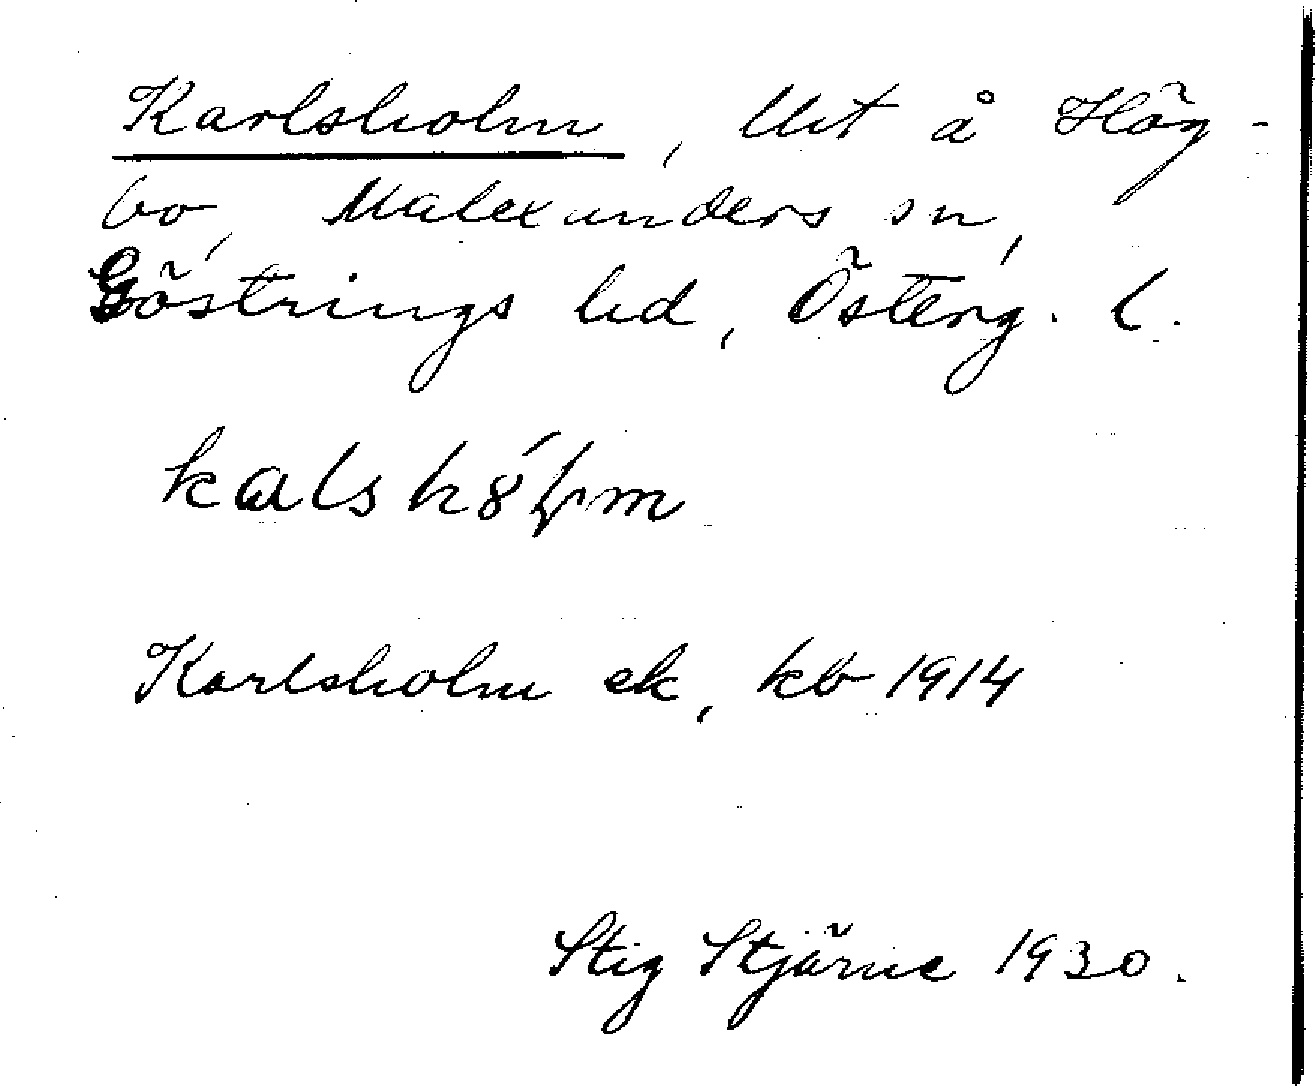 Karlsholm, lht å Hög-
bo, Malexanders sn,
Göstrings hd, Österg. l.
Karlsholm ek, kb 1914
Stig Stjärne 1930.